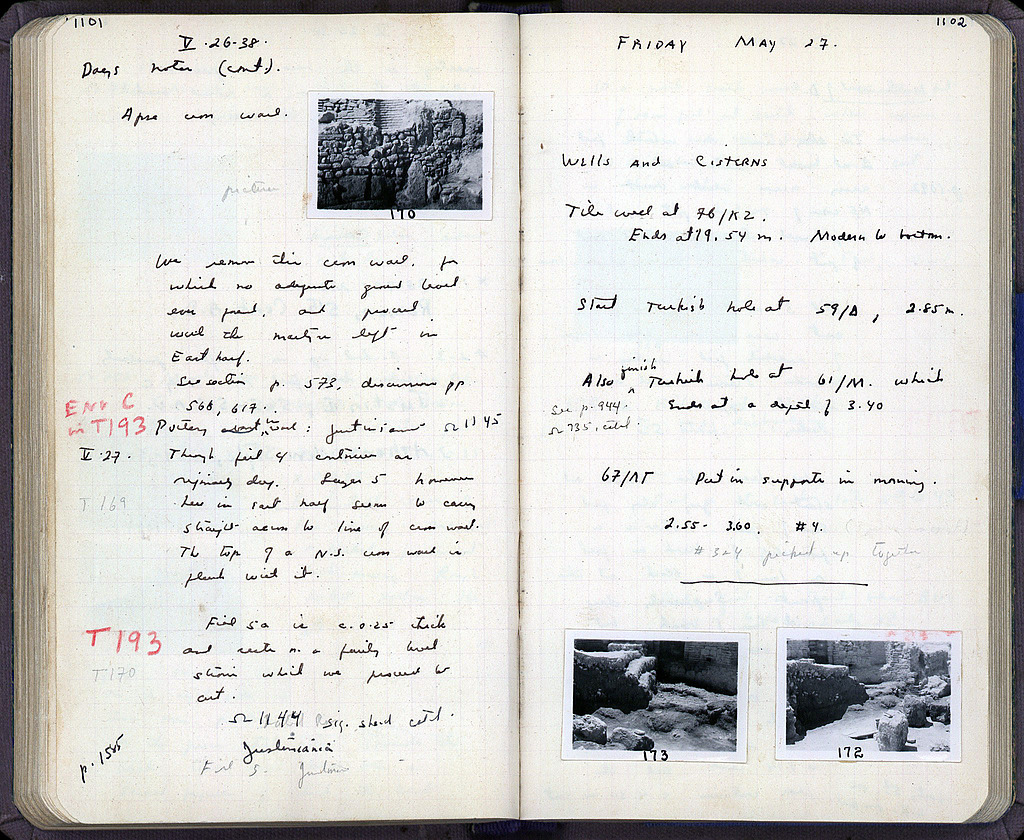 1101
V·26-38·
Days notes (cont).
Apse cross wall.
picture
170
We remove this cross wall, for
which no adequate ground level
ever found, and proceed
with the left in
East half.
See section p. 573, discussion pp.
566, 617.
ENV C
in T193
Pottery in wall: Justinian Ω 1145
V·27·
T169
Though fill 4 continues as
Layer 5 however
here in east half seems to carry
straight across to line of cross wall.
The top of a N.S. cross wall is
flush with it.
T193
T170
Fill 5a is c. 0.25 thick
and rests on a fairly level
stratum which we proceed to
cut.
Ω 1144 sig. sherd
Justiniania
Fill 5.
p. 1505
1102
FRIDAY MAY 27.
WELLS AND CISTERNS
Tile well at 76/K2.
Ends at 19.54 m. Modern to bottom.
Start Turkish hole at 59/Δ, 2.85m.
Also finish Turkish hole at 61/M. which
See p. 944.
Ends at a depth of 3.40
Ω 735,
67/ΛΓ Put in supports in morning.
2.55 - 3.60 #4.
#3+4 picked up together
173
172